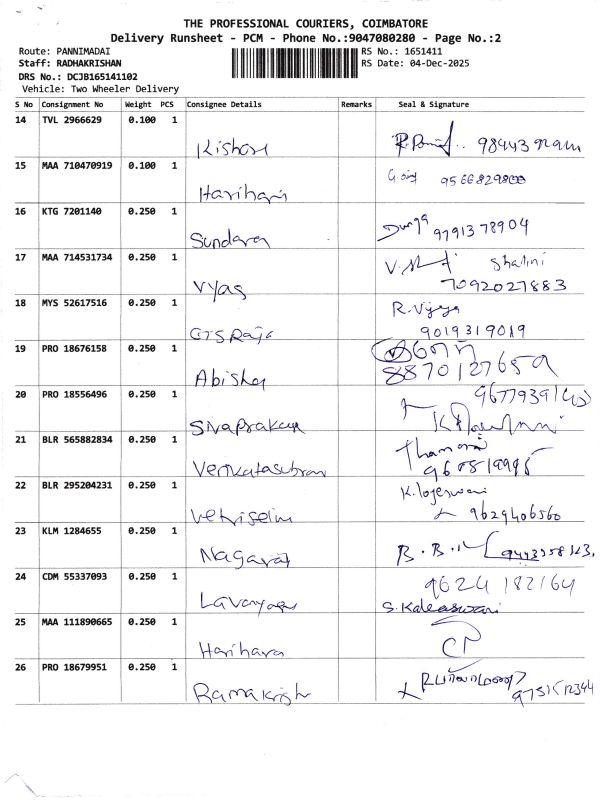 THE PROFESSIONAL COURIERS, COIMBATORE
Delivery Runsheet - PCM - Phone No.:9047080280 - Page No.:2
Route: PANNIMADAI
Staff: RADHAKRISHAN
DRS No.: DCJB165141102
Vehicle: Two Wheeler Delivery
RS No.: 1651411
RS Date: 04-Dec-2025
S No Consignment No Weight PCS Consignee Details Remarks Seal & Signature
14 TVL 2966629 0.100 1
Kishore
15 MAA 710470919 0.100 1
Harihari 9566829800
16 KTG 7201140 0.250 1
Sundara Durga 9791378904
17 MAA 714531734 0.250 1
Vyas Shalini
7092027883
18 MYS 52617516 0.250 1
GTS Raja R. Vijaya
9019319019
19 PRO 18676158 0.250 1
Abisha
20 PRO 18556496 0.250 1
Sivaprakas
21 BLR 565882834 0.250 1
Venkatasubran
22 BLR 295204231 0.250 1
Vetriselin K. logeswari
9629406560
23 KLM 1284655 0.250 1
Nagaraj
24 CDM 55337093 0.250 1
Lavanya 9624 182164
S. Kaleaswari
25 MAA 111890665 0.250 1
Harihara
26 PRO 18679951 0.250 1
Ramakrish